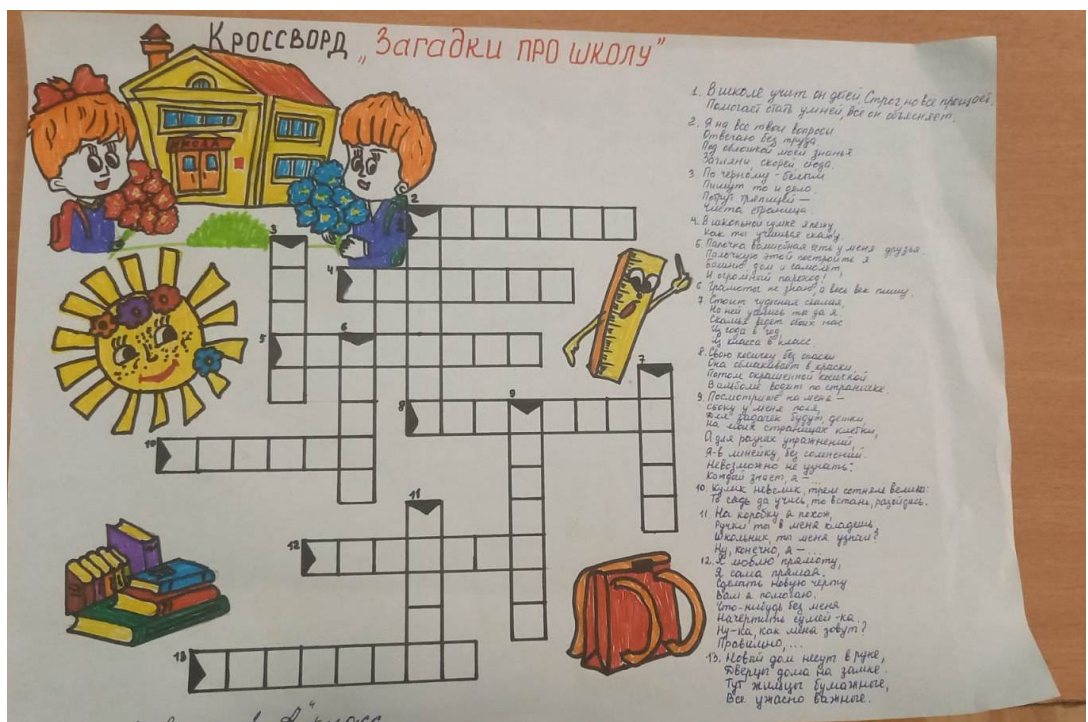 Кроссворд „Загадки про школу"
ШКОЛА
1. В школе учит он детей. Строг, но все прощает.
Помогает стать умней, все он объясняет.
2. Я на все твои вопросы
Отвечаю без труда.
Под обложкой моей знанья
Загляни скорей сюда.
3. По черному - белым
Пишут то и дело.
Потрут тряпицей —
Чиста страница
4. В школьной сумке я лежу,
Как ты учишься скажу.
5. Палочка волшебная есть у меня друзья.
Палочкою этой построить я
Башню, дом и самолет,
И огромный пароход!
6. Грамоты не знаю, а весь век пишу.
7. Стоит чудесная скамья,
На ней уселись ты да я.
Скамья ведет обоих нас
Из года в год,
Из класса в класс.
8. Свою косичку без опаски
Она обмакивает в краски.
Потом окрашенной косичкой
В альбоме водит по страничке.
9. Посмотрите на меня —
сбоку у меня поля,
Для задачек будут, детки
На моих страницах клетки,
А для разных упражнений,
Я-в линейку, без сомнений.
Невозможно не узнать:
Каждый знает, я - ..
10. Кулик невелик, трем сотням велит:
То сядь да учись, то встань, разойдись.
11. На коробку я похож,
Ручки ты в меня кладешь,
Школьник, ты меня узнал?
Ну, конечно, я — ...
12. Я люблю прямоту,
Я сама прямая.
Сделать новую черту
Вам я помогаю.
Что-нибудь без меня
Начертить сумей-ка.
Ну-ка, как меня зовут?
Правильно, ...
13. Новый дом несут в руке,
Дверцы дома на замке.
Тут жильцы бумажные,
Все ужасно важные.
2
1
3
4
5
6
7
8
9
10
11
12
13
класс